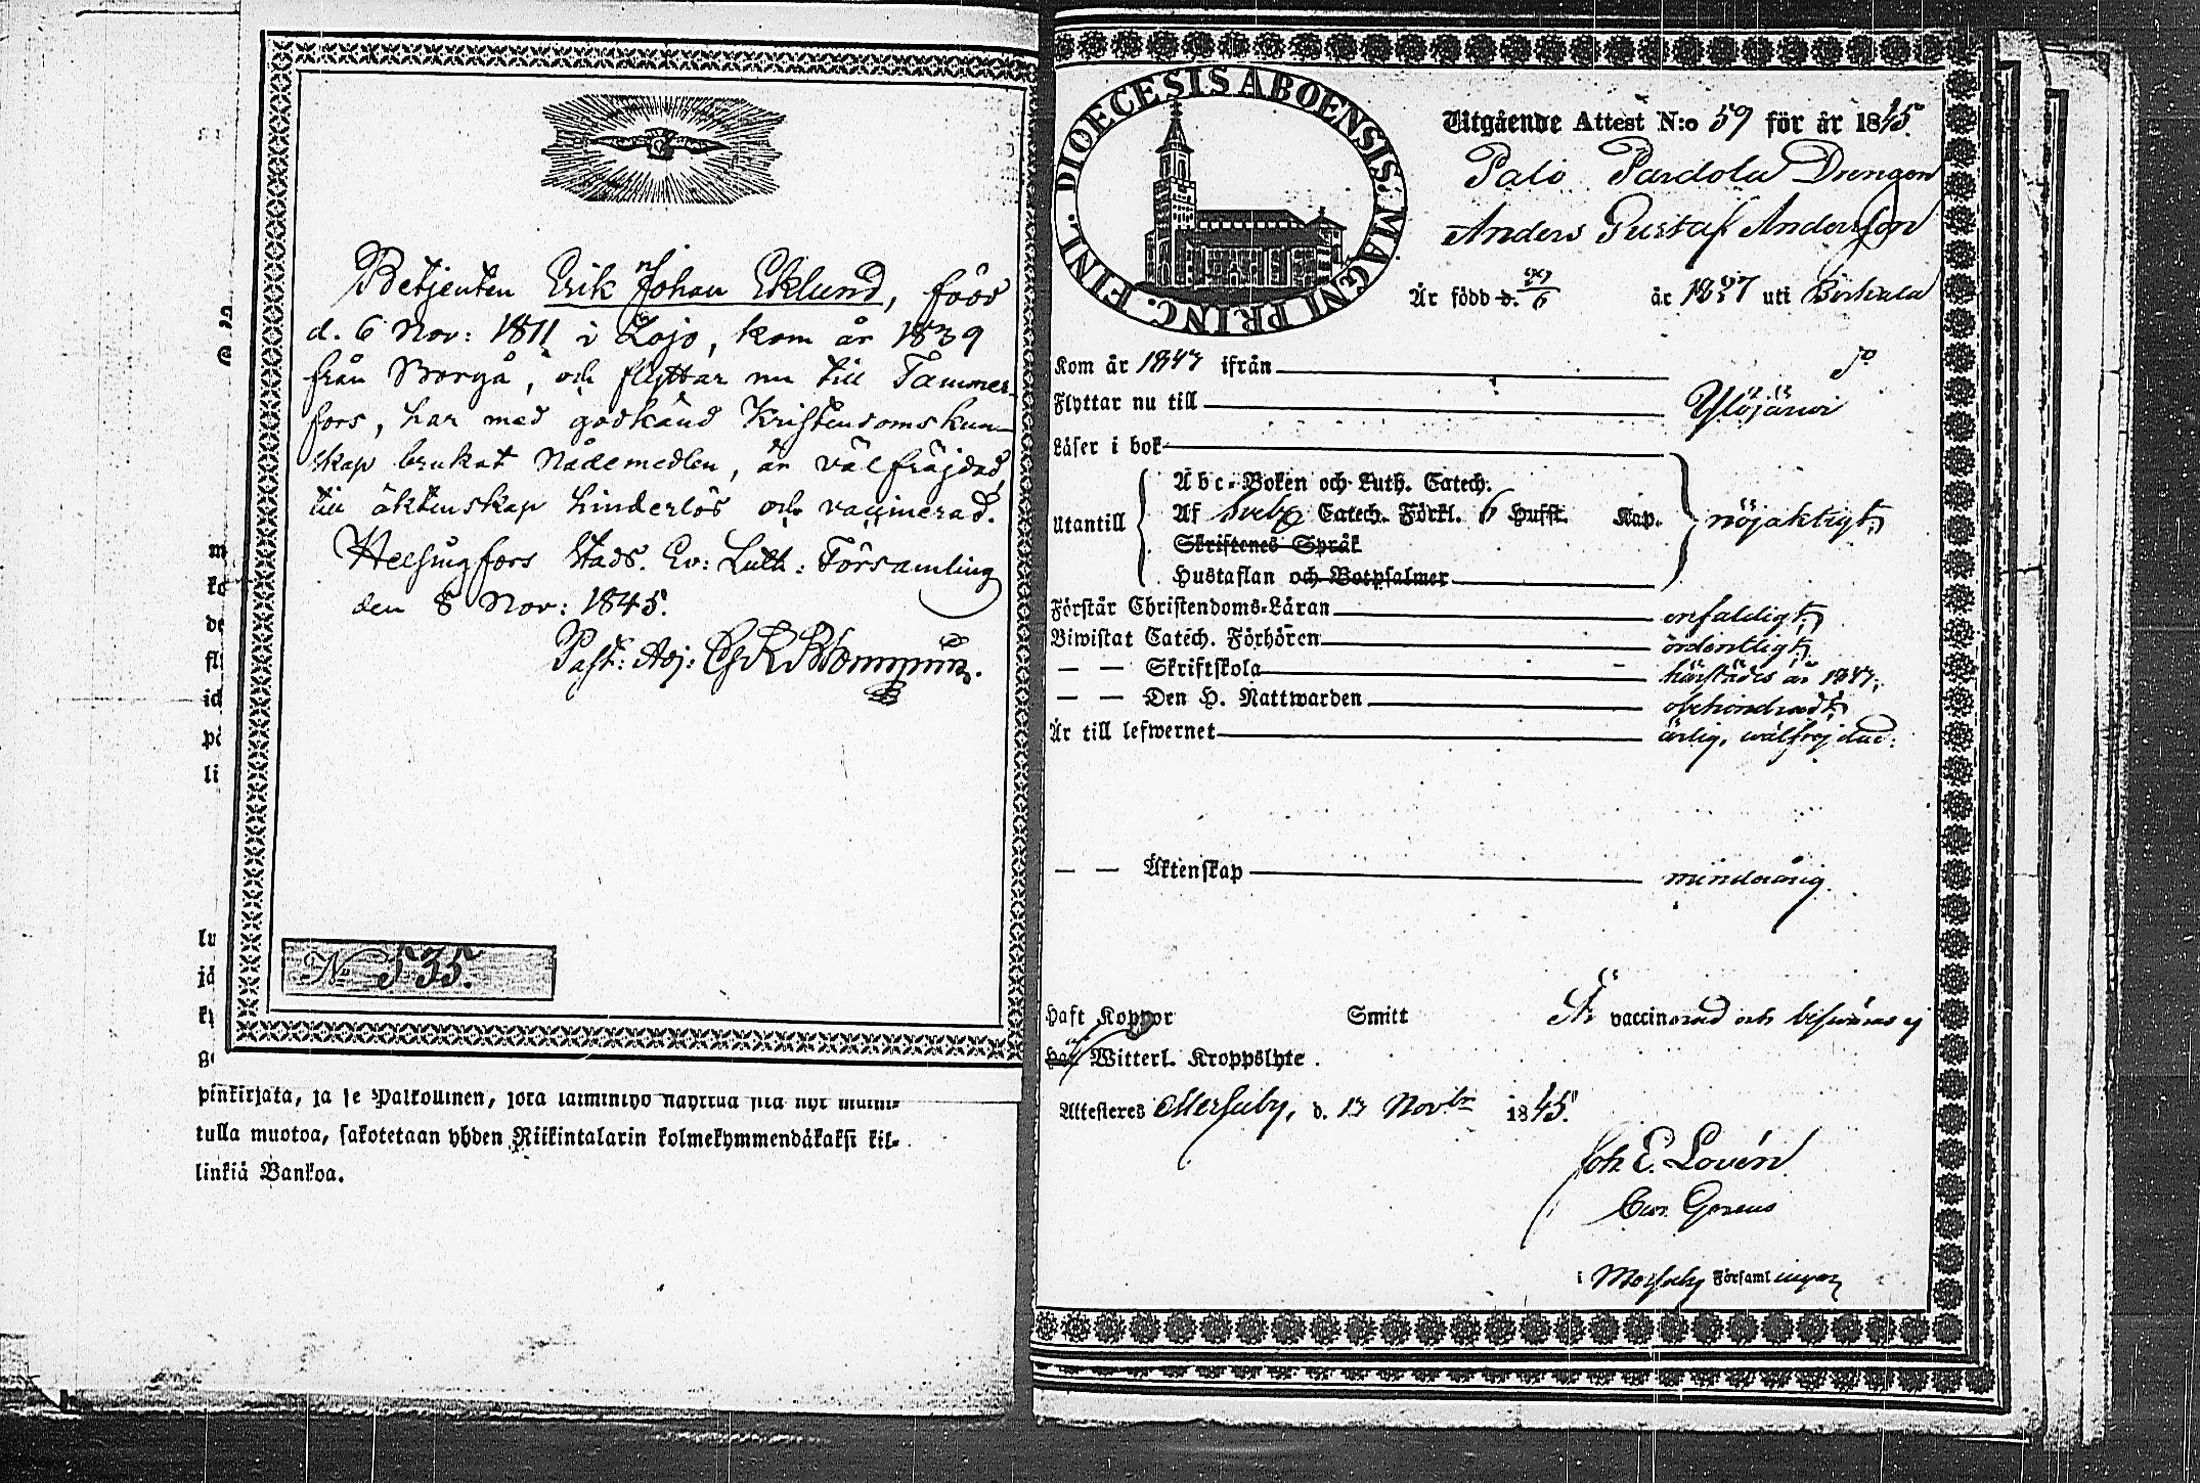 Betjenten Erik Johan Eklund, född
d. 6 Nov: 1811 i Lojo, kom år 1839
från Borgå, och flyttar nu till Tammer-
fors, har med godkänd Kristendomskun-
skap brukat Nådemedlen, är välfräjdad,
till äktenskap hinderlös och vaccinerad.
Helsingfors Stads Ev: Luth: Församling
den 8 Nov: 1845.
Past: Adj:
No 535.
m
ko
de
fl
id
på
li
lu
jä
ky
ge
pinkirjata, ja se Palkollinen, joka
tulla muotoa, sakotetaan yhden Riikintalarin kolmekymmendäkaksi kil-
linkiä Bankoa.
DIOECESIS ABOENSIS. MAGNI PRINC. FINL.
Utgående Attest N:o 59 för år 1845.
Palo Pardola Drengen
Anders Gustaf Andersson
Är född d. 29/6 år 1827 uti Birkala
Kom år 1843 ifrån
Flyttar nu till Ylöjärvi
Läser i bok
Utantill
Abc-Boken och Luth. Catech.
Af Sveb. Catech. Förkl. 6 Hufst. Kap. nöjaktigt;
Skriftenes Språk
Hustaflan och Botpsalmer
Förstår Christendoms-Läran enfaldigt;
Biwistat Catech. Förhören ordentligt;
— — Skriftskola härstädes år 1843;
— — Den H. Nattwarden obehindradt;
Är till lefwernet ärlig, wälfrejdad:
— — Äktenskap minderårig.
Haft Koppor Smitt Är vaccinerad och besväras ej
Haft Witterl. Kroppslyte.
Attesteres Messuby, d. 13 Novbr 1845.
Joh. E. Lovén
i Messuby Församlingen